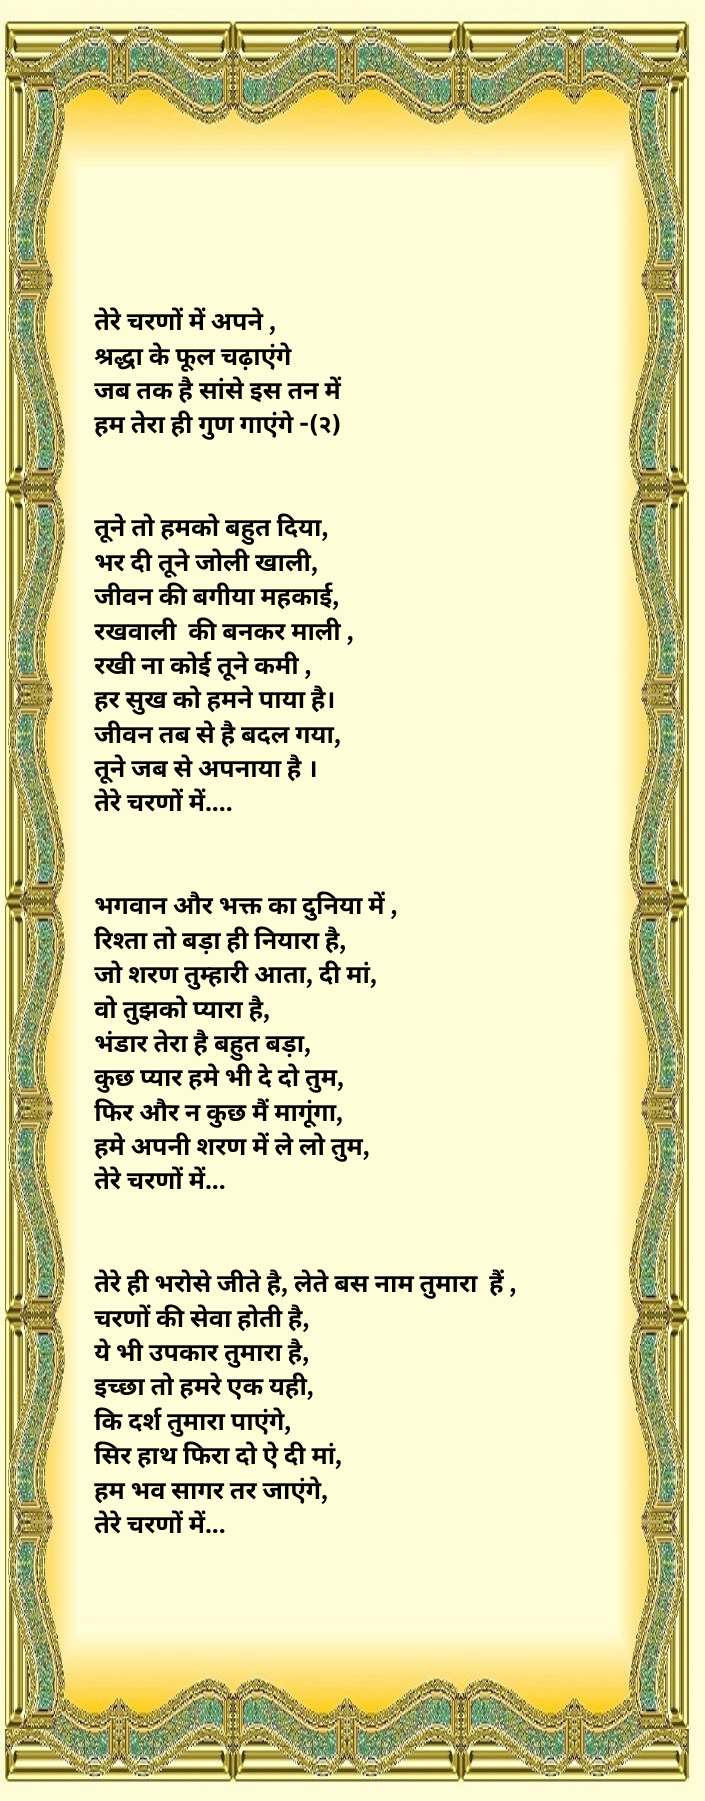 तेरे चरणों में अपने ,
श्रद्धा के फूल चढ़ाएंगे
जब तक है सांसे इस तन में
हम तेरा ही गुण गाएंगे -(२)
तूने तो हमको बहुत दिया,
भर दी तूने जोली खाली,
जीवन की बगीया महकाई,
रखवाली  की बनकर माली ,
रखी ना कोई तूने कमी ,
हर सुख को हमने पाया है।
जीवन तब से है बदल गया,
तूने जब से अपनाया है ।
तेरे चरणों में....
भगवान और भक्त का दुनिया में ,
रिश्ता तो बड़ा ही नियारा है,
जो शरण तुम्हारी आता, दी मां,
वो तुझको प्यारा है,
भंडार तेरा है बहुत बड़ा,
कुछ प्यार हमे भी दे दो तुम,
फिर और न कुछ मैं मागूंगा,
हमे अपनी शरण में ले लो तुम,
तेरे चरणों में...
तेरे ही भरोसे जीते है, लेते बस नाम तुमारा  हैं ,
चरणों की सेवा होती है,
ये भी उपकार तुमारा है,
इच्छा तो हमरे एक यही,
कि दर्श तुमारा पाएंगे,
सिर हाथ फिरा दो ऐ दी मां,
हम भव सागर तर जाएंगे,
तेरे चरणों में...